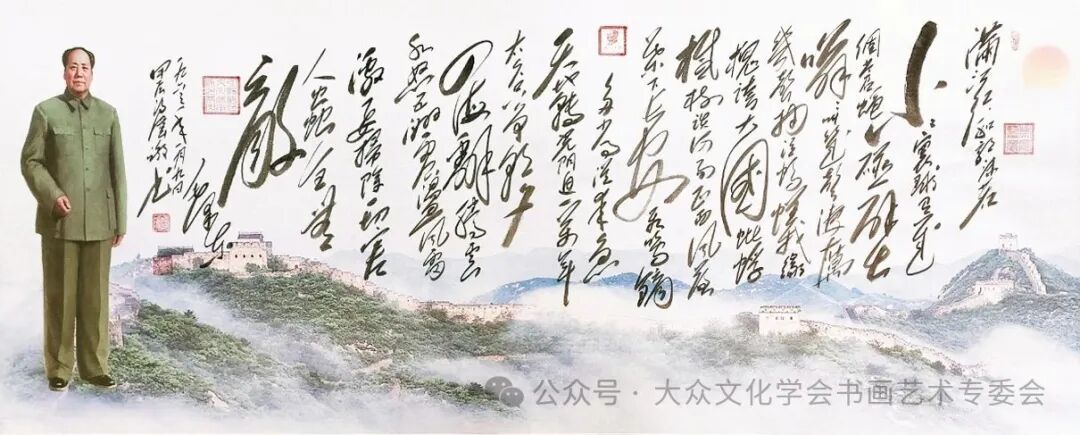 满江红和郭沫若
小小寰球有几
個苍蝇碰壁
嗡嗡叫几声凄厉
几声抽泣蚂蚁缘
槐夸大国蚍蜉
撼树谈何易正西风落
葉下长安飞鸣镝
多少事从来急
天地转光阴迫一万年
太久只争朝夕
四海翻腾云
水怒五洲震荡风雷
激要扫除一切害
人蟲全无
敵
毛泽东
一九六三年一月九日
公众号·大众文化学会书画艺术专委会